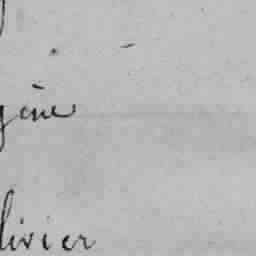 gène
livier